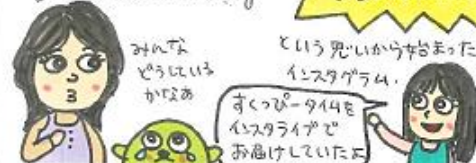 みんな
どうしている
かなあ
という思いから始まった
インスタグラム.
すくっぴータイムを
インスタライブで
お届けしていたよ